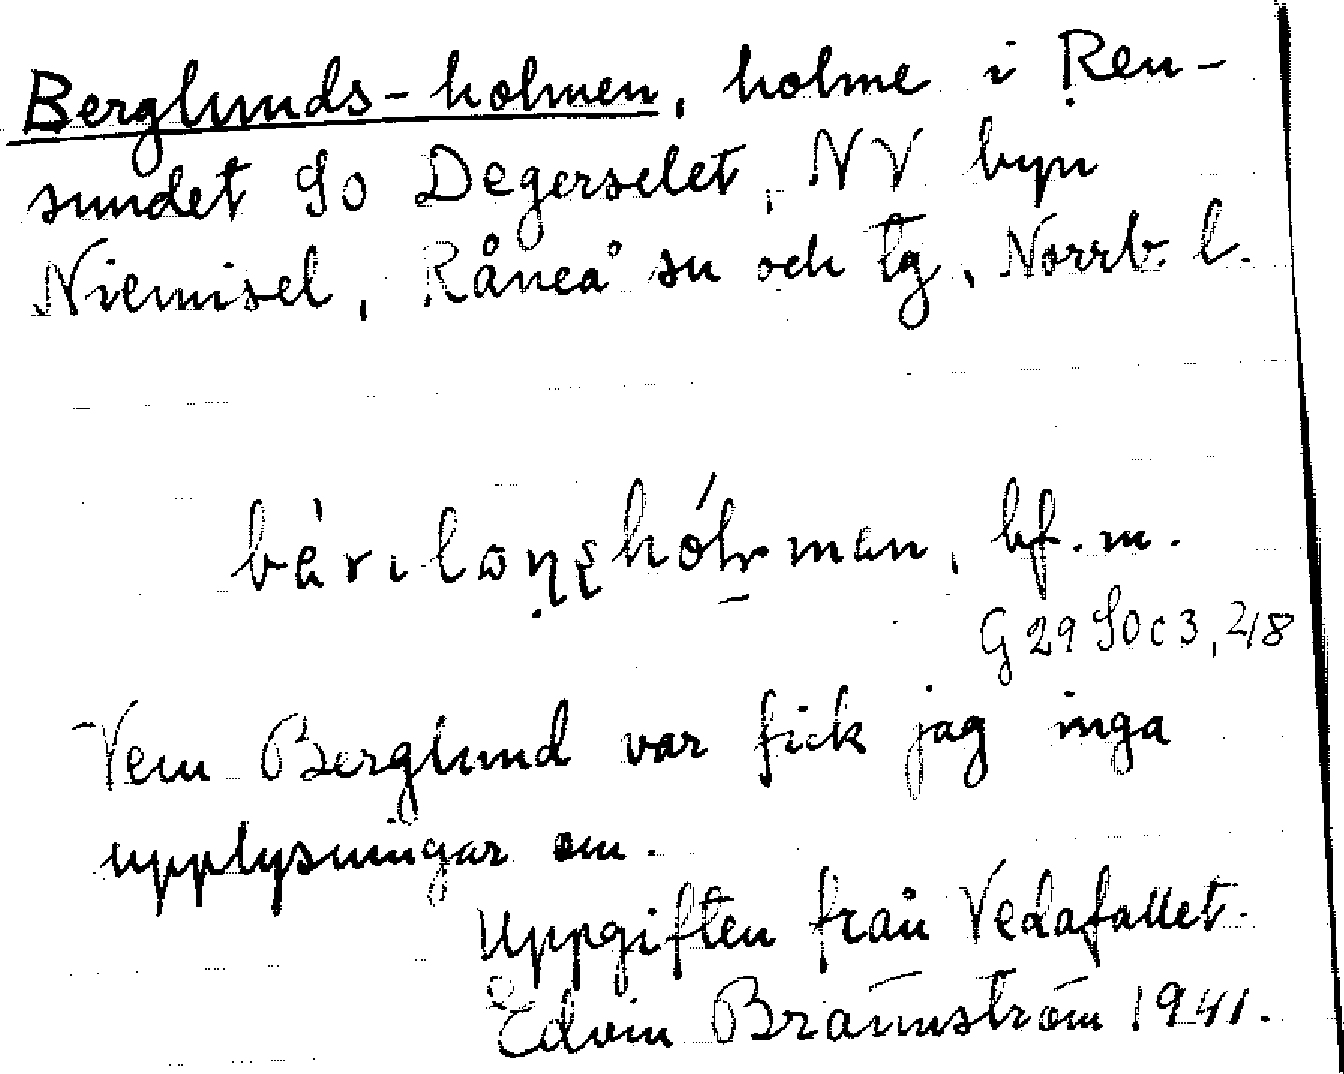 Berglunds-holmen, holme i Ren-
sundet SO Degerselet, NV byn
Niemisel, Råneå sn och tg, Norrb. l.
bf. m.
G 29 SO c 3, 218
Vem Berglund var fick jag inga
upplysningar om.
Uppgiften från Vedafallet.
Edvin Brännström 1941.